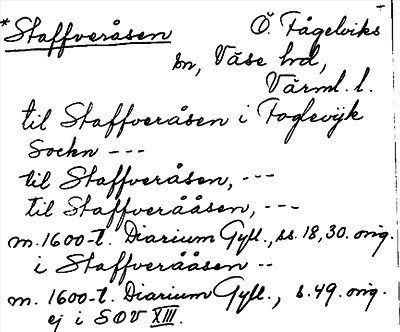 *Staffveråsen Ö. Fågelviks
sn, Väse hd,
Värml. l.
til Staffveråsen i Foglevijk
Sockn ---
til Staffveråsen, ---
til Staffverååsen, ---
m. 1600-t. Diarium Gyll., ss. 18, 30. orig.
i Staffverååsen --
m. 1600-t. Diarium Gyll., s. 49. orig.
ej i SOV XIII.